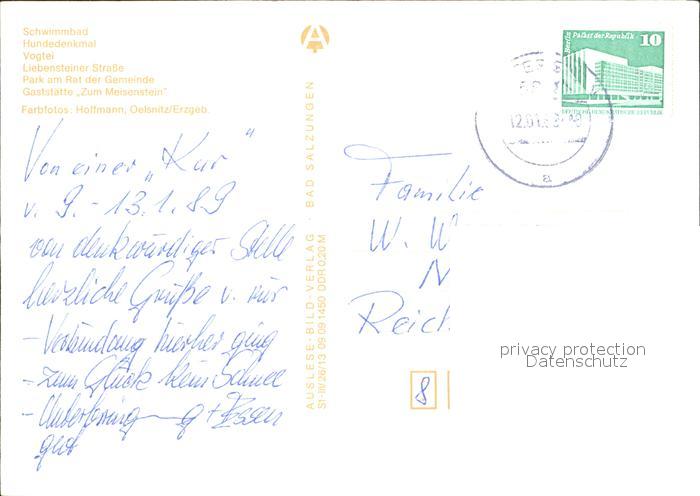 Schwimmbad
Hundedenkmal
Vogtei
Liebensteiner Straße
Park am Rat der Gemeinde
Gaststätte „Zum Meisenstein"
Farbfotos: Hoffmann, Oelsnitz/Erzgeb.
Von einer „Kur"
v. 9. - 13.1.89
von denkwürdiger Stelle
herzliche Grüße v. mir
- Verbindung hierher ging
- zum Glück kein Schnee
- Unterbringung + Essen
gut
AUSLESE-BILD-VERLAG · BAD SALZUNGEN
S1-IV/26/13 09 09 1450 DDR 0,20 M
Berlin Palast der Republik
10
DEUTSCHE DEMOKRATISCHE REPUBLIK
a
Familie
W. W
N
Reich
8
privacy protection
Datenschutz